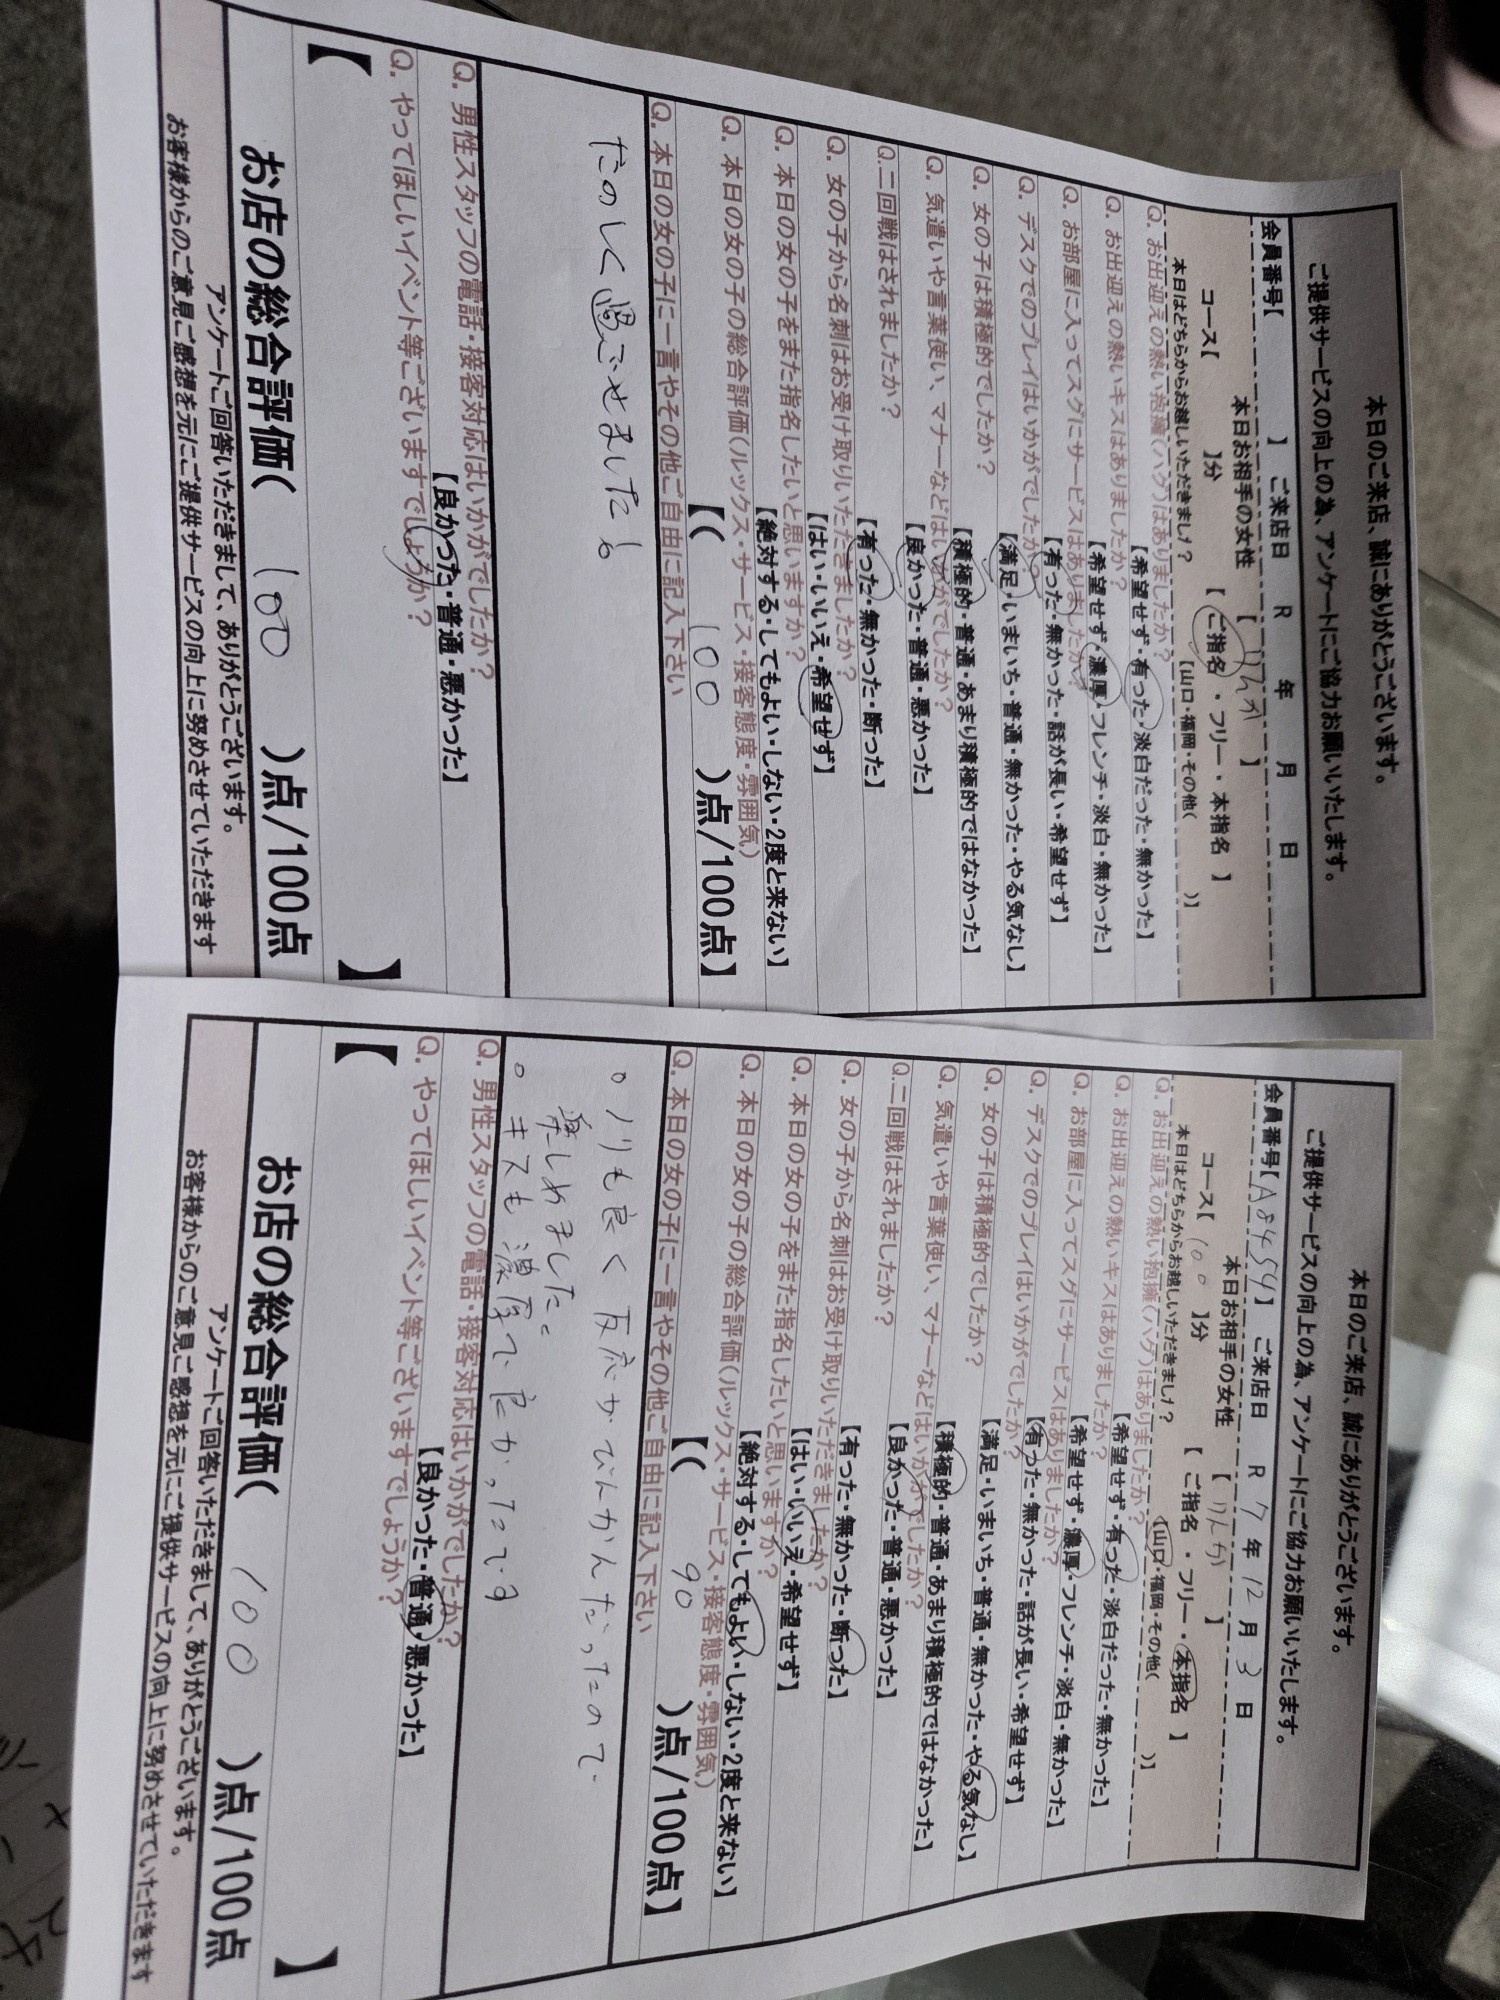 本日のご来店、誠にありがとうございます。
ご提供サービスの向上の為、アンケートにご協力お願いいたします。
会員番号【 】 ご来店日 R 年 月 日
本日お相手の女性 【 りんか 】
コース【 】分 【 ご指名 ・ フリー ・ 本指名 】
本日はどちらからお越しいただきまし? 【山口・福岡・その他( )】
Q. お出迎えの熱い抱擁(ハグ)はありましたか? 【希望せず・有った・淡白だった・無かった】
Q. お出迎えの熱いキスはありましたか? 【希望せず・濃厚・フレンチ・淡白・無かった】
Q. お部屋に入ってスグにサービスはありましたか? 【有った・無かった・話が長い・希望せず】
Q. デスクでのプレイはいかがでしたか? 【満足・いまいち・普通・無かった・やる気なし】
Q. 女の子は積極的でしたか? 【積極的・普通・あまり積極的ではなかった】
Q. 気遣いや言葉使い、マナーなどはいかがでしたか? 【良かった・普通・悪かった】
Q.二回戦はされましたか? 【有った・無かった・断った】
Q. 女の子から名刺はお受け取りいただきましたか? 【はい・いいえ・希望せず】
Q. 本日の女の子をまた指名したいと思いますか? 【絶対する・してもよい・しない・2度と来ない】
Q. 本日の女の子の総合評価(ルックス・サービス・接客態度・雰囲気)
【( 100 )点/100点】
Q. 本日の女の子に一言やその他ご自由に記入下さい
たのしく過ごせました!
Q. 男性スタッフの電話・接客対応はいかがでしたか?
【良かった・普通・悪かった】
Q. やってほしいイベント等ございますでしょうか?
【 】
お店の総合評価( 100 )点/100点
アンケートご回答いただきまして、ありがとうございます。
お客様からのご意見ご感想を元にご提供サービスの向上に努めさせていただきます
本日のご来店、誠にありがとうございます。
ご提供サービスの向上の為、アンケートにご協力お願いいたします。
会員番号【A8454】 ご来店日 R 7 年 12 月 3 日
本日お相手の女性 【 りんか 】
コース【 100 】分 【 ご指名 ・ フリー ・ 本指名 】
本日はどちらからお越しいただきまし? 【山口・福岡・その他( )】
Q. お出迎えの熱い抱擁(ハグ)はありましたか? 【希望せず・有った・淡白だった・無かった】
Q. お出迎えの熱いキスはありましたか? 【希望せず・濃厚・フレンチ・淡白・無かった】
Q. お部屋に入ってスグにサービスはありましたか? 【有った・無かった・話が長い・希望せず】
Q. デスクでのプレイはいかがでしたか? 【満足・いまいち・普通・無かった・やる気なし】
Q. 女の子は積極的でしたか? 【積極的・普通・あまり積極的ではなかった】
Q. 気遣いや言葉使い、マナーなどはいかがでしたか? 【良かった・普通・悪かった】
Q.二回戦はされましたか? 【有った・無かった・断った】
Q. 女の子から名刺はお受け取りいただきましたか? 【はい・いいえ・希望せず】
Q. 本日の女の子をまた指名したいと思いますか? 【絶対する・してもよい・しない・2度と来ない】
Q. 本日の女の子の総合評価(ルックス・サービス・接客態度・雰囲気)
【( 90 )点/100点】
Q. 本日の女の子に一言やその他ご自由に記入下さい
。ノリも良く反応がびんかんだったので、
楽しめました。
。キスも濃厚で良かったです
Q. 男性スタッフの電話・接客対応はいかがでしたか?
【良かった・普通・悪かった】
Q. やってほしいイベント等ございますでしょうか?
【 】
お店の総合評価( 100 )点/100点
アンケートご回答いただきまして、ありがとうございます。
お客様からのご意見ご感想を元にご提供サービスの向上に努めさせていただきます